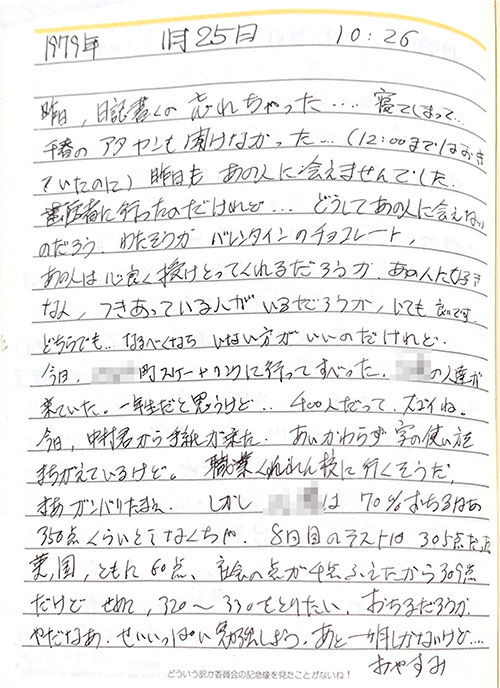 1979年 1月25日 10:26
昨日,日記書くの忘れちゃった…. 寝てしまって…
千春のアタヤンも聞けなかった…(12:00まではおき
ていたのに)昨日も あの人に会えませんでした.
歯医者に行ったのだけれど… どうしてあの人に会えない
のだろう. わたそうか バレンタインのチョコレート,
あの人は心良く授けとってくれるだろうか. あの人に好き
な人, つきあっている人がいるだろうか, いても 良いです.
どちらでも… なるべくなら いない方がいいのだけれど.
今日, 町スケートリンクに行ってすべった. の人達が
来ていた。一年生だと思うけど.. 400人だって,スゴイね。
今日, 中村君から手紙が来た. あいかわらず字の使い方を
まちがえているけど。 職業くんれん校に行くそうだ,
まあ ガンバリたまえ. しかし は 70%おちるなあ
350点くらいとらなくちゃ. 8日目のテストは 305点だった
英,国,ともに 60点, 社会の点が4点ふえたから309点
だけど せめて, 320〜330をとりたい. おちるだろうか.
やだなあ. せいいっぱい 勉強しよう. あと一ヶ月しかないけど….
おやすみ
どういう訳か委員会の記念像を見たことがないね!